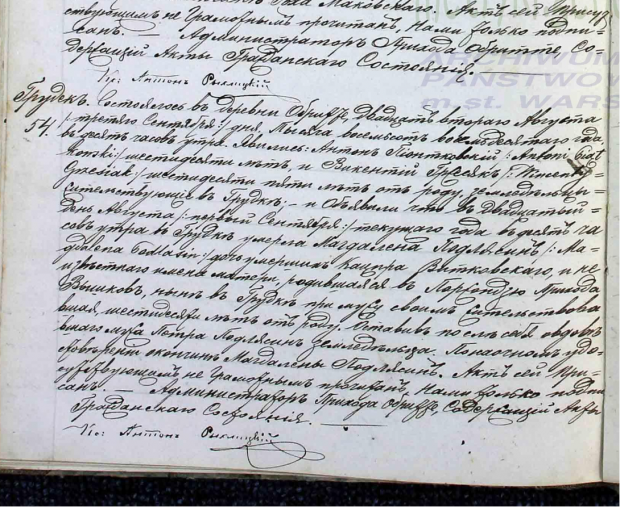 ствующимъ не Грамотнымъ прочитанъ, Нами только подпи=
санъ. — Администраторъ Прихода Обрытте, Со=
держащій Акты Гражданскаго Состоянія.
Кс: Антонъ
ARCHIWUM
PAŃSTWOW
m.st. WARS
Грудскъ.
54.
Состоялось въ Деревни Обрытте, Двадцать втораго Августа
/:третяго Сентября:/ дня, тысяча восемьсотъ восьмдесятаго года,
въ десять часовъ утра. Явились: Антонъ Піонтковскій /:Antoni Piąt=
kowski:/ шестидесяти лѣтъ, и Викентій Гржесякъ /:Wincenty
Grzesiak:/ шестидесяти пяти лѣтъ отъ роду, земледѣльцы
жительствующіе въ Грудскъ; — и Объявили что въ Двадцатый
день Августа /:первый Сентября:/ текущаго года въ десять ча=
совъ утра въ Грудскъ умерла Магдалена Подлясинъ /:Ma=
gdalena Podlasin:/ дочь умершихъ Каспра Витковскаго, и не
извѣстнаго имени матери, родившаяся въ Прихода
Вышковъ, нынѣ въ Грудскъ при мужу своимъ жительствова
вшая, шестидесяти лѣтъ отъ роду. Оставивъ по себѣ овдовѣ
вшаго мужа Петра Подлясинъ земледѣльца. По наочномъ удо=
стовѣреніи о кончинѣ Магдалены Подлясинъ. Актъ сей При=
сутствующимъ не Грамотнымъ прочитанъ, Нами только подпи
санъ. — Администраторъ Прихода Обрытте, Содержащій Акты
Гражданскаго Состоянія.
Кс: Антонъ